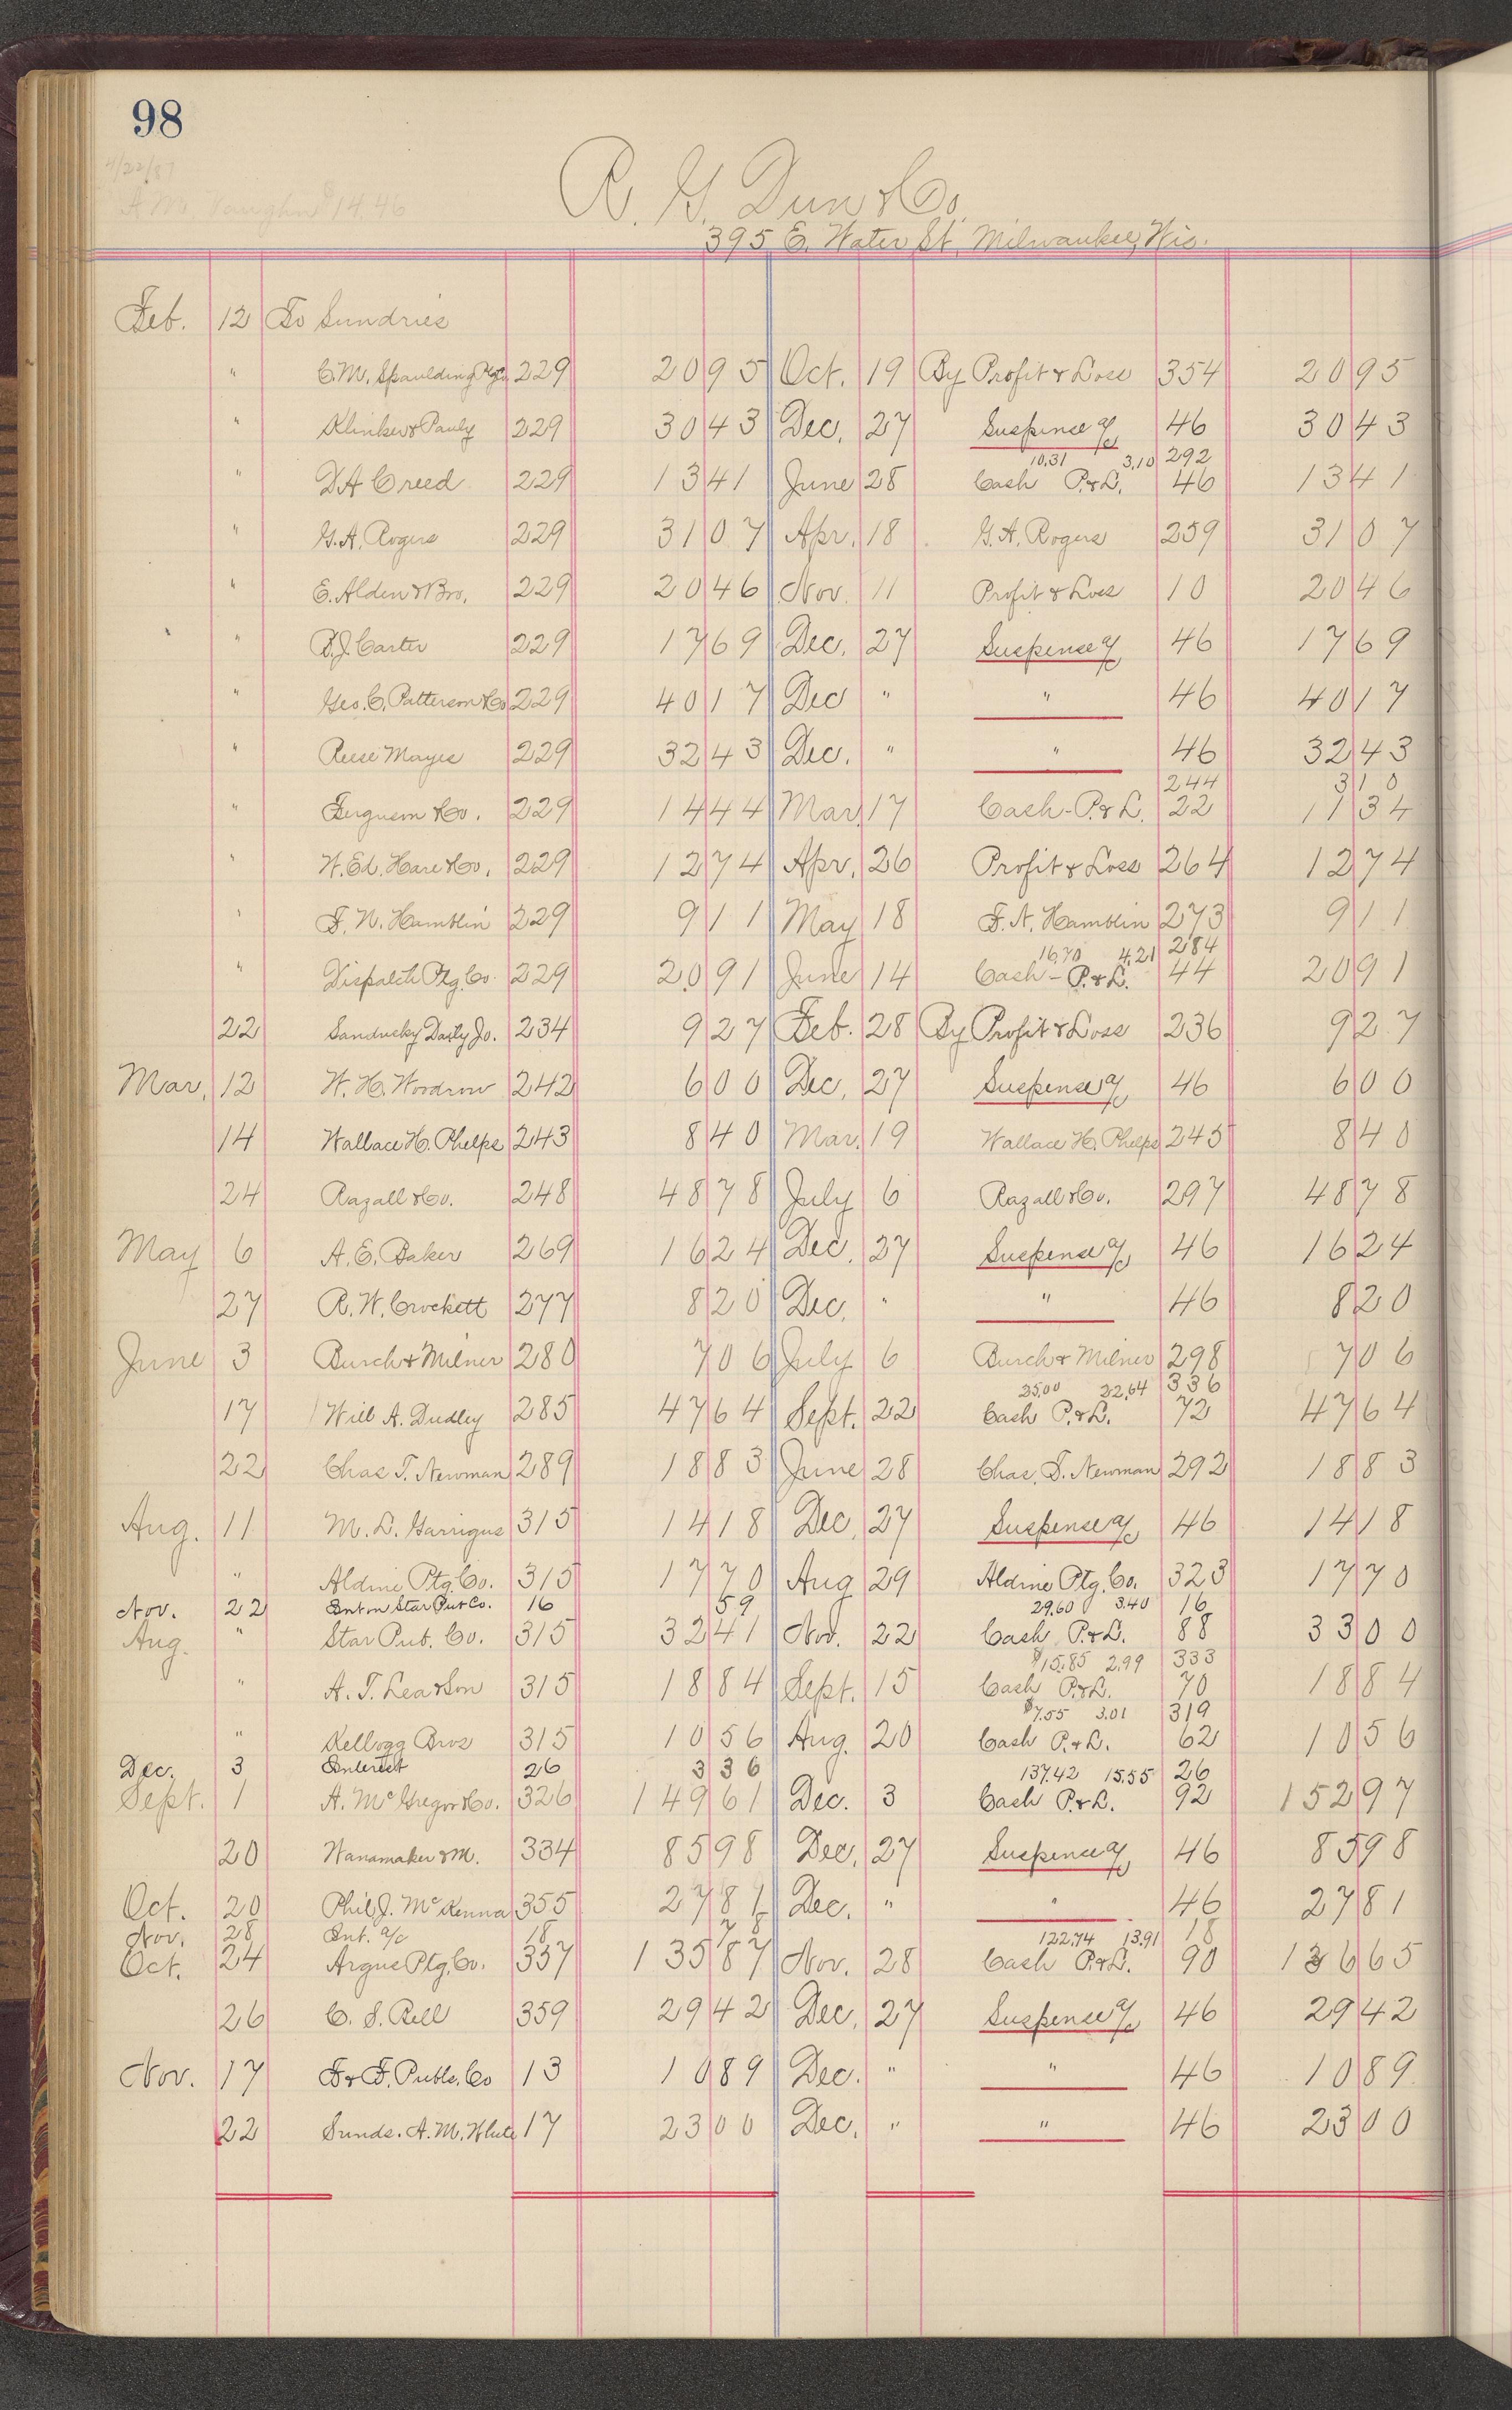 98
4/22/87
A.M. Vaughn $14.46
R. G. Dun & Co.
395 E. Water St. Milwaukee, Wis.
Feb. 12 To Sundries
" C.M. Spaulding Ptg Co 229 20 95 Oct. 19 By Profit & Loss 354 20 95
" Klinker & Pauly 229 30 43 Dec. 27 Suspense a/c 46 30 43
10.31 3.10 292
" D A Creed 229 13 41 June 28 Cash P. & L. 46 13 41
" G. A. Rogers 229 31 07 Apr. 18 G. A. Rogers 259 31 07
" E. Alden & Bro. 229 20 46 Nov. 11 Profit & Loss 10 20 46
" B. J. Carter 229 17 69 Dec. 27 Suspense a/c 46 17 69
" Geo. C. Patterson & Co 229 40 17 Dec " " 46 40 17
" Reese Mayes 229 32 43 Dec. " " 46 32 43
244 3 10
" Ferguson & Co. 229 14 44 Mar. 17 Cash - P. & L. 22 11 34
" W. Ed. Hare & Co. 229 12 74 Apr. 26 Profit & Loss 264 12 74
" F. N. Hamblin 229 9 11 May 18 F. N. Hamblin 273 9 11
16.70 4.21 284
" Dispatch Ptg. Co. 229 20 91 June 14 Cash - P. & L. 44 20 91
22 Sandusky Daily Jo. 234 9 27 Feb. 28 By Profit & Loss 236 9 27
Mar. 12 W. H. Woodrow 242 6 00 Dec. 27 Suspense a/c 46 6 00
14 Wallace H. Phelps 243 8 40 Mar. 19 Wallace H. Phelps 245 8 40
24 Razall & Co. 248 48 78 July 6 Razall & Co. 297 48 78
May 6 A. E. Baker 269 16 24 Dec. 27 Suspense a/c 46 16 24
27 R. W. Crockett 277 8 20 Dec. " " 46 8 20
June 3 Burch & Milner 280 7 06 July 6 Burch & Milner 298 7 06
25.00 22.64 336
17 Will A. Dudley 285 47 64 Sept. 22 Cash P. & L. 72 47 64
22 Chas T. Newman 289 18 83 June 28 Chas. T. Newman 292 18 83
Aug. 11 M. L. Garrigus 315 14 18 Dec. 27 Suspense a/c 46 14 18
" Aldine Ptg. Co. 315 17 70 Aug 29 Aldine Ptg. Co. 323 17 70
Nov. 22 Int on Star Pub Co. 16 59 29.60 3.40 16
Aug. " Star Pub. Co. 315 32 41 Nov. 22 Cash P. & L. 88 33 00
$15.85 2.99 333
" A. T. Lea & Son 315 18 84 Sept. 15 Cash P. & L. 70 18 84
$7.55 3.01 319
" Kellogg Bros 315 10 56 Aug. 20 Cash P. & L. 62 10 56
Dec. 3 Interest 26 3 36 137.42 15.55 26
Sept. 1 A. McGregor & Co. 326 149 61 Dec. 3 Cash P. & L. 92 152 97
20 Wanamaker & M. 334 85 98 Dec. 27 Suspense a/c 46 85 98
Oct. 20 Phil J. McKenna 355 27 81 Dec. " " 46 27 81
Nov. 28 Int. a/c 18 78 122.74 13.91 18
Oct. 24 Argus Ptg. Co. 357 135 87 Nov. 28 Cash P. & L. 90 136 65
26 C. S. Bell 359 29 42 Dec. 27 Suspense a/c 46 29 42
Nov. 17 F & F. Publs. Co 13 10 89 Dec. " " 46 10 89
22 Sunds. A. M. 17 23 00 Dec. " " 46 23 00